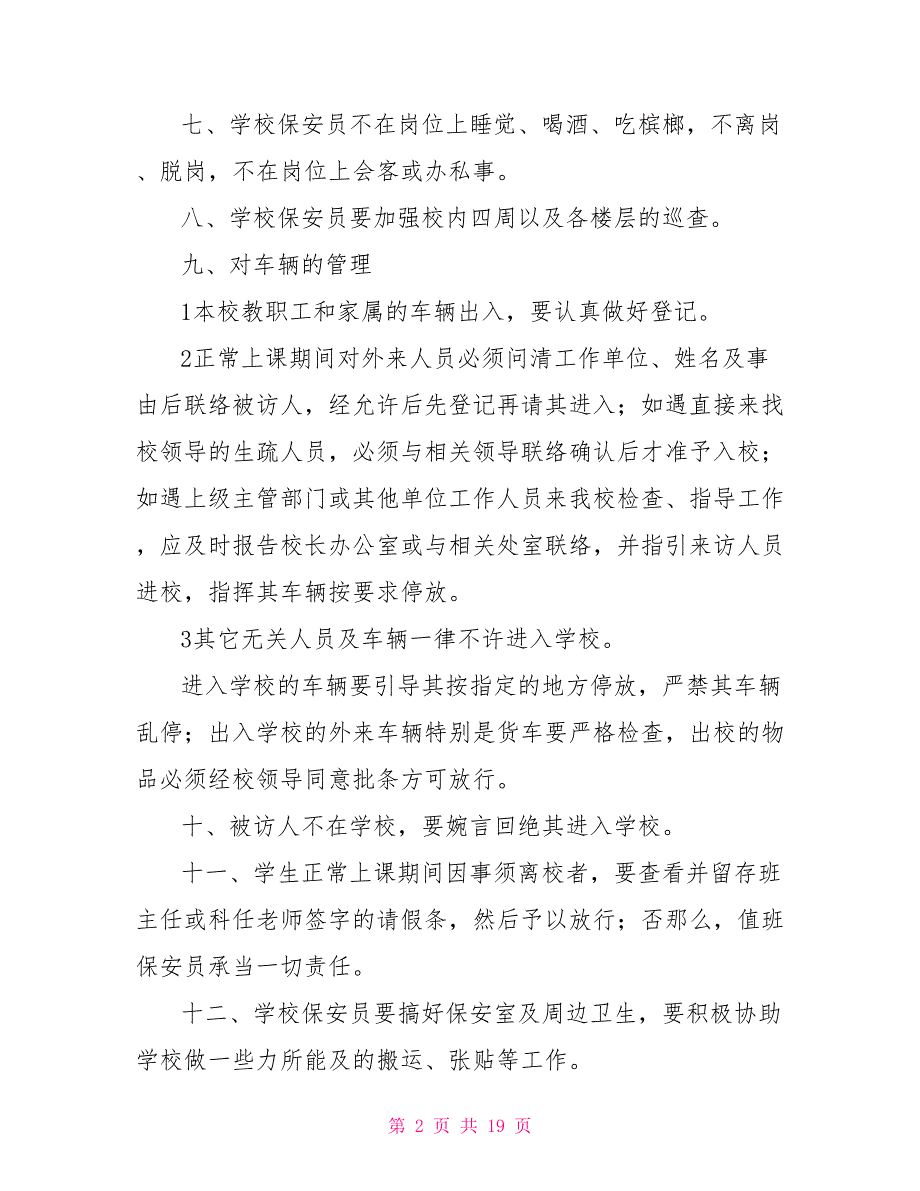 七、学校保安员不在岗位上睡觉、喝酒、吃槟榔，不离岗
、脱岗，不在岗位上会客或办私事。
八、学校保安员要加强校内四周以及各楼层的巡查。
九、对车辆的管理
1本校教职工和家属的车辆出入，要认真做好登记。
2正常上课期间对外来人员必须问清工作单位、姓名及事
由后联络被访人，经允许后先登记再请其进入；如遇直接来找
校领导的生疏人员，必须与相关领导联络确认后才准予入校；
如遇上级主管部门或其他单位工作人员来我校检查、指导工作
，应及时报告校长办公室或与相关处室联络，并指引来访人员
进校，指挥其车辆按要求停放。
3其它无关人员及车辆一律不许进入学校。
进入学校的车辆要引导其按指定的地方停放，严禁其车辆
乱停；出入学校的外来车辆特别是货车要严格检查，出校的物
品必须经校领导同意批条方可放行。
十、被访人不在学校，要婉言回绝其进入学校。
十一、学生正常上课期间因事须离校者，要查看并留存班
主任或科任老师签字的请假条，然后予以放行；否那么，值班
保安员承当一切责任。
十二、学校保安员要搞好保安室及周边卫生，要积极协助
学校做一些力所能及的搬运、张贴等工作。
第 2 页 共 19 页